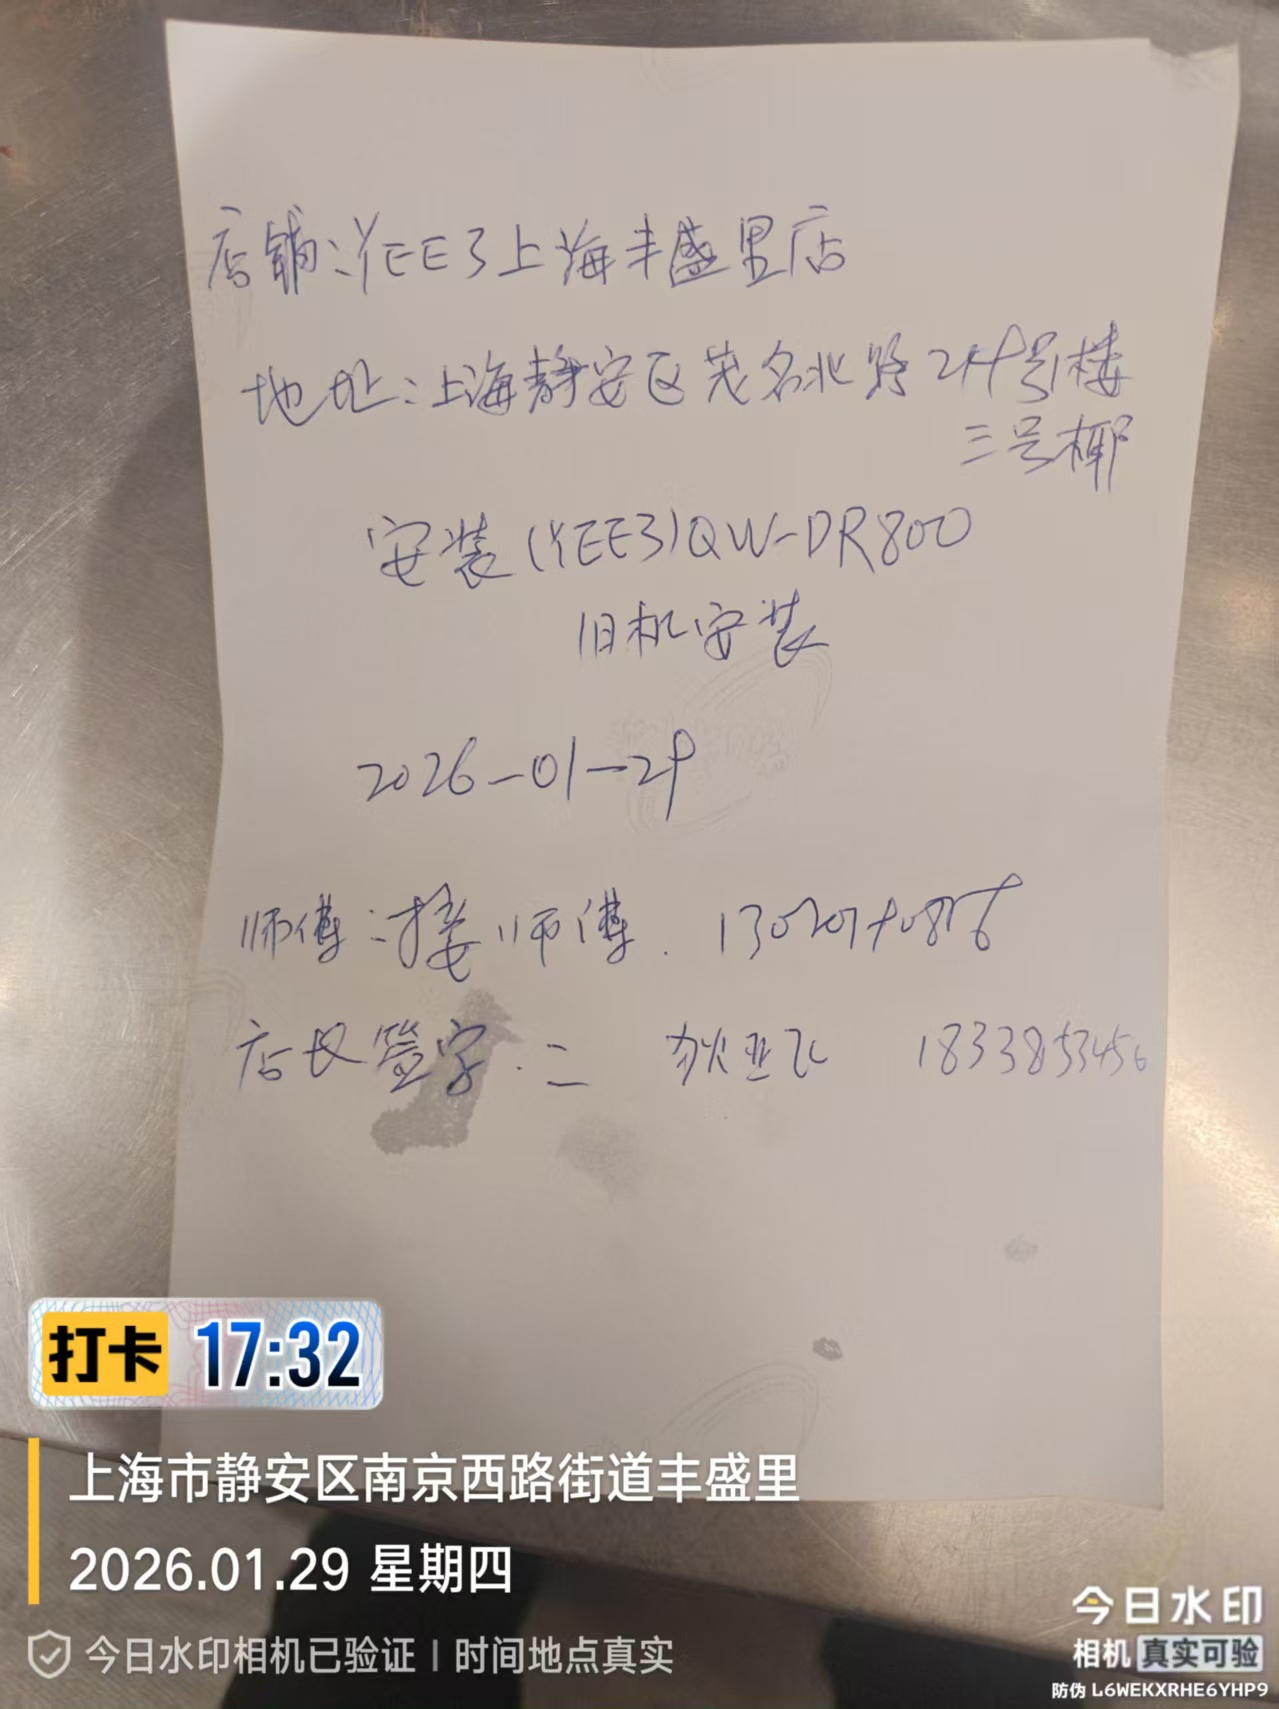 店铺:YEE3上海丰盛里店
地址:上海静安区茂名北路244号楼
三号
安装(YEE3)QW-DR800
旧机安装
2026-01-29
师傅:接师傅.
店长签字:二 狄亚飞 1833853456
打卡 17:32
上海市静安区南京西路街道丰盛里
2026.01.29 星期四
今日水印相机已验证 | 时间地点真实
今日水印
相机 真实可验
防伪 L6WEKXRHE6YHP9